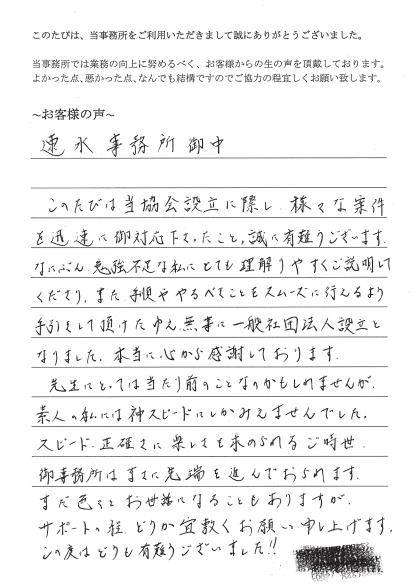 このたびは、当事務所をご利用いただきまして誠にありがとうございました。
当事務所では業務の向上に努めるべく、お客様からの生の声を頂戴しております。
よかった点、悪かった点、なんでも結構ですのでご協力の程宜しくお願い致します。
~お客様の声~
速水事務所御中
このたびは当協会設立に際し、様々な案件
を迅速に御対応下さったこと、誠に有難うございます。
なにぶん勉強不足な私にとても理解りやすくご説明して
くださり、また、手順ややるべきことをスムーズに行えるよう
手引きをして頂けたゆえ、無事に一般社団法人設立と
なりました。本当に心から感謝しております。
先生にとっては当たり前のことなのかもしれませんが、
素人の私には神スピードにしかみえませんでした。
スピード、正確さに楽しさも求められるご時世、
御事務所はまさに先端を進んでおられます。
まだ色々とお世話になることもありますが、
サポートの程、どうか宜敷くお願い申し上げます。
この度はどうも有難うございました!!